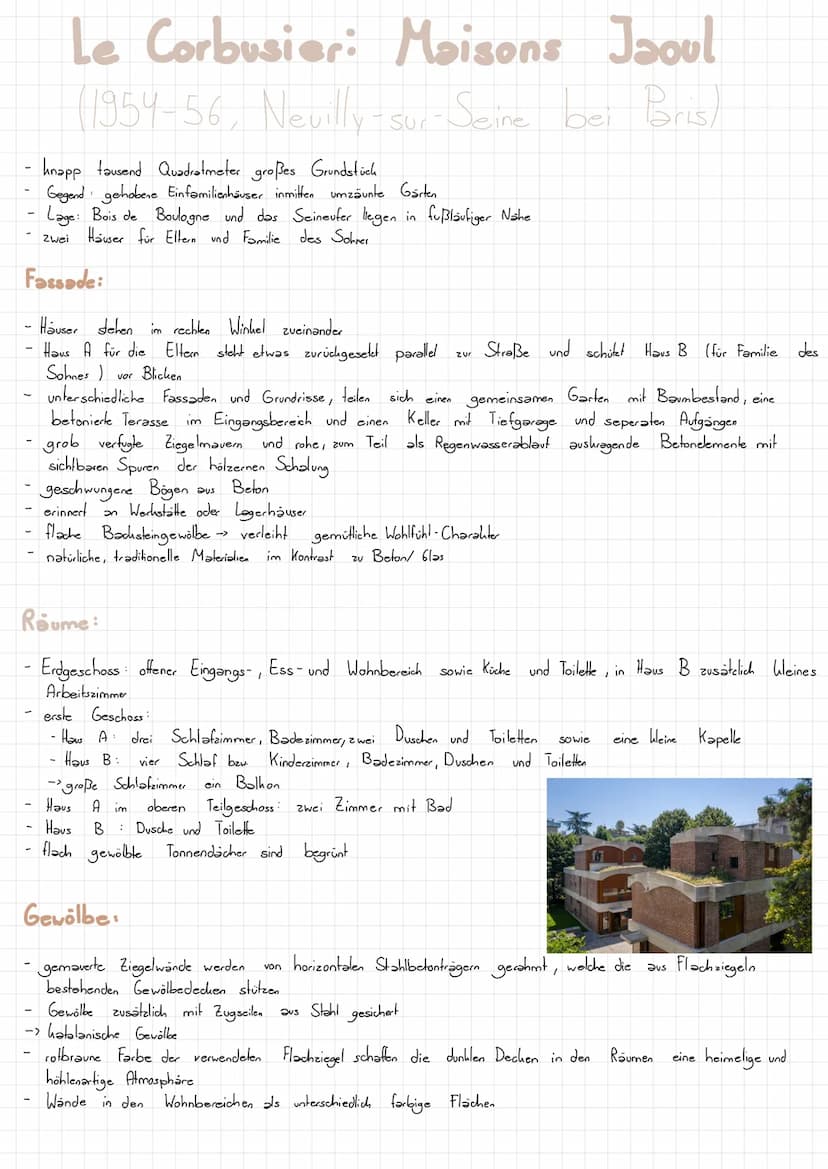 Le Corbusier: Maisons Jaoul
(1954-56, Neuilly-sur-Seine bei Paris)
- knapp tausend Quadratmeter großes Grundstück
- Gegend: gehobene Einfamilienhäuser inmitten umzäunte Gärten
- Lage: Bois de Boulogne und das Seineufer liegen in fußläufiger Nähe
- zwei Häuser für Eltern und Familie des Sohnes
Fassade:
- Häuser stehen im rechten Winkel zueinander
- Haus A für die Eltern steht etwas zurückgesetzt parallel zur Straße und schützt Haus B (für Familie des
Sohnes) vor Blicken
- unterschiedliche Fassaden und Grundrisse, teilen sich einen gemeinsamen Garten mit Baumbestand, eine
betonierte Terasse im Eingangsbereich und einen Keller mit Tiefgarage und seperaten Aufgängen
- grob verfugte Ziegelmauern und rohe, zum Teil als Regenwasserablauf auskragende Betonelemente mit
sichtbaren Spuren der hölzernen Schalung
- geschwungene Bögen aus Beton
- erinnert an Werkstätte oder Lagerhäuser
- flache Backsteingewölbe → verleiht gemütliche Wohlfühl-Charakter
- natürliche, traditionelle Materialien im Kontrast zu Beton/Glas
Räume:
- Erdgeschoss: offener Eingangs-, Ess- und Wohnbereich sowie Küche und Toilette, in Haus B zusätzlich kleines
Arbeitszimmer
- erste Geschoss:
- Haus A: drei Schlafzimmer, Badezimmer, zwei Duschen und Toiletten sowie eine kleine Kapelle
- Haus B: vier Schlaf bzw. Kinderzimmer, Badezimmer, Duschen und Toiletten
-> große Schlafzimmer ein Balkon
- Haus A im oberen Teilgeschoss: zwei Zimmer mit Bad
- Haus B: Dusche und Toilette
- flach gewölbte Tonnendächer sind begrünt
Gewölbe:
- gemauerte Ziegelwände werden von horizontalen Stahlbetonträgern gerahmt, welche die aus Flachziegeln
bestehenden Gewölbedecken stützen
- Gewölbe zusätzlich mit Zugseilen aus Stahl gesichert
-> katalanische Gewölbe
- rotbraune Farbe der verwendeten Flachziegel schaffen die dunklen Decken in den Räumen eine heimelige und
höhlenartige Atmosphäre
- Wände in den Wohnbereichen als unterschiedlich farbige Flächen